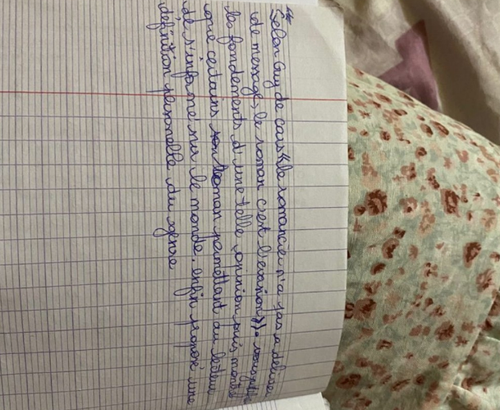 Selon Guy de cars « le romancier n'a pas a délivrer
de message, le roman c'est l'evasion ».
les fondements d'une telle opinion puis montré
que certains roman permettant au lecteur
de s'informé sur le monde. enfin proposé une
définition personelle du genre